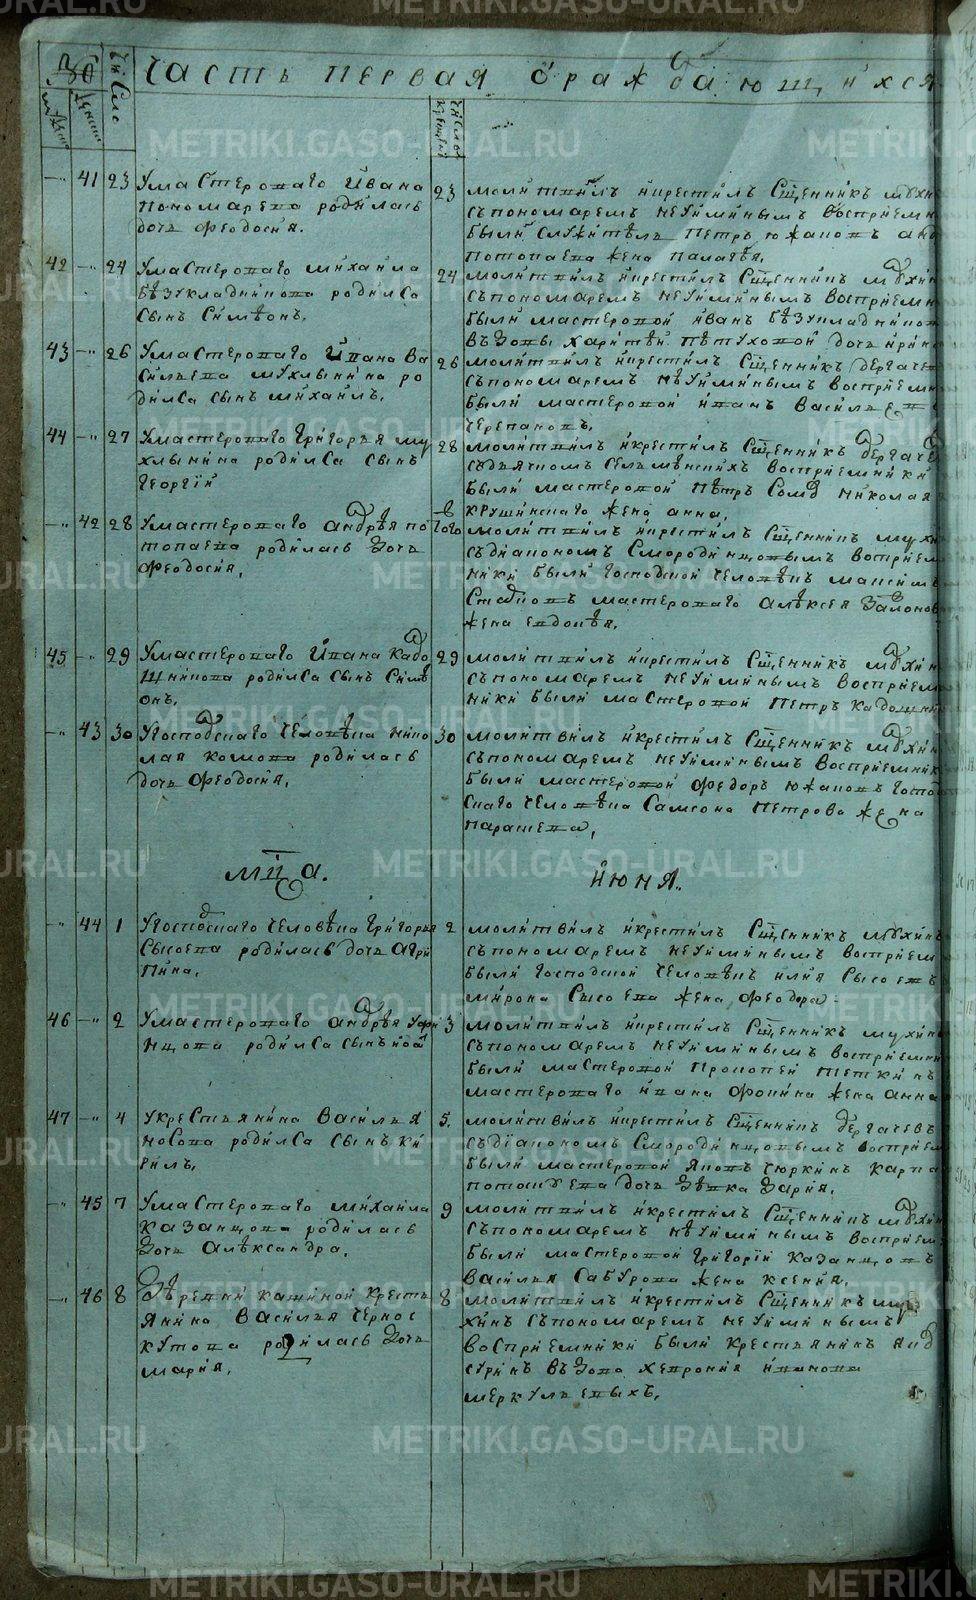 Часть первая о раждающихся
число
число крещения
41 23 У мастероваго Ивана
Пономарева родилась
дочь Феодосия.
23 молитвилъ и крестилъ Сщенникъ Мухин
съ пономаремъ Неуйминымъ восприемн
были служитель Петръ Южаковъ
Потопаева жена Палагея.
42 24 У мастероваго Михаила
Безукладникова родился
сынъ Симеонъ.
24 молитвилъ и крестилъ Сщенникъ Мухин
съ пономаремъ Неуйминымъ восприемн
были мастеровой Иванъ Безукладников
вдовы Харитеи Петуховой дочь Ирин
43 26 У мастероваго Ивана Ва
сильева Мухлынина ро
дился сынъ Михаилъ.
26 молитвилъ и крестилъ Сщенникъ Дергачев
съ пономаремъ Неуйминымъ восприемн
были мастеровой Иванъ Василье
Черепановъ.
44 27 У мастероваго Григорья Му
хлынина родился сынъ
Георгий
28 молитвилъ и крестилъ Сщенникъ Дергаче
были мастеровой Петръ Николая
Крушинскаго жена Анна.
42 28 У мастероваго Андрея По
топаева родилась дочь
Феодосия.
того молитвилъ и крестилъ Сщенникъ Мухи
съ диакономъ Смородинцовымъ восприем
ники были господской человекъ Максимъ
мастероваго Алексея
жена Евдокея.
45 29 У мастероваго Ивана Кадо
щникова родился сынъ Симе
онъ.
29 молитвилъ и крестилъ Сщенникъ Мухин
съ пономаремъ Неуйминымъ восприем
ники были мастеровой Петръ Кадошни
43 30 У господскаго человека Нико
лая Комова родилась
дочь Феодосия.
30 молитвилъ и крестилъ Сщенникъ Мухин
съ пономаремъ Неуйминымъ восприемник
были мастеровой Федоръ Южаковъ госпо
скаго человека Самсона Петрова жена
Парашева,
мца.
Июня.
44 1 У господскаго человека Григорья
Сысоева родилась дочь Агри
пина.
2 молитвилъ и крестилъ Сщенникъ Мухинъ
съ пономаремъ Неуйминымъ восприем
были господской человекъ Илия Сысоевъ
Мирона Сысоева жена Феодора
46 2 У мастероваго Андрея Уфи
нцова родился сынъ
3 молитвилъ и крестилъ Сщенникъ Мухин
съ пономаремъ Неуйминымъ восприемни
были мастеровой Прокопей Теткинъ
мастероваго Ивана Фокина жена Анна
47 4 У крестьянина Василья
Носова родился сынъ Ки
рилъ.
5. молитвилъ и крестилъ Сщенникъ Дергачевъ
съ диакономъ Смородинцовымъ восприем
были мастеровой Яковъ Чюркинъ Карпа
дочь девка Дария.
45 7 У мастероваго Михаила
Казанцова родилась
дочь Александра.
9 молитвилъ и крестилъ Сщенникъ Мухин
съ пономаремъ Неуйминымъ восприем
были мастеровой Григорий Казанцовъ
Василья Сабурова жена Ксения.
46 8 Деревни Кашиной кресть
янина Василья Чернос
кутова родилась дочь
Мария.
8 молитвилъ и крестилъ Сщенникъ Му
хинъ съ пономаремъ Неуйминымъ
восприемники были крестьянинъ
вдова Хеврония Иванова
Меркульевыхъ.
METRIKI.GASO-URAL.RU